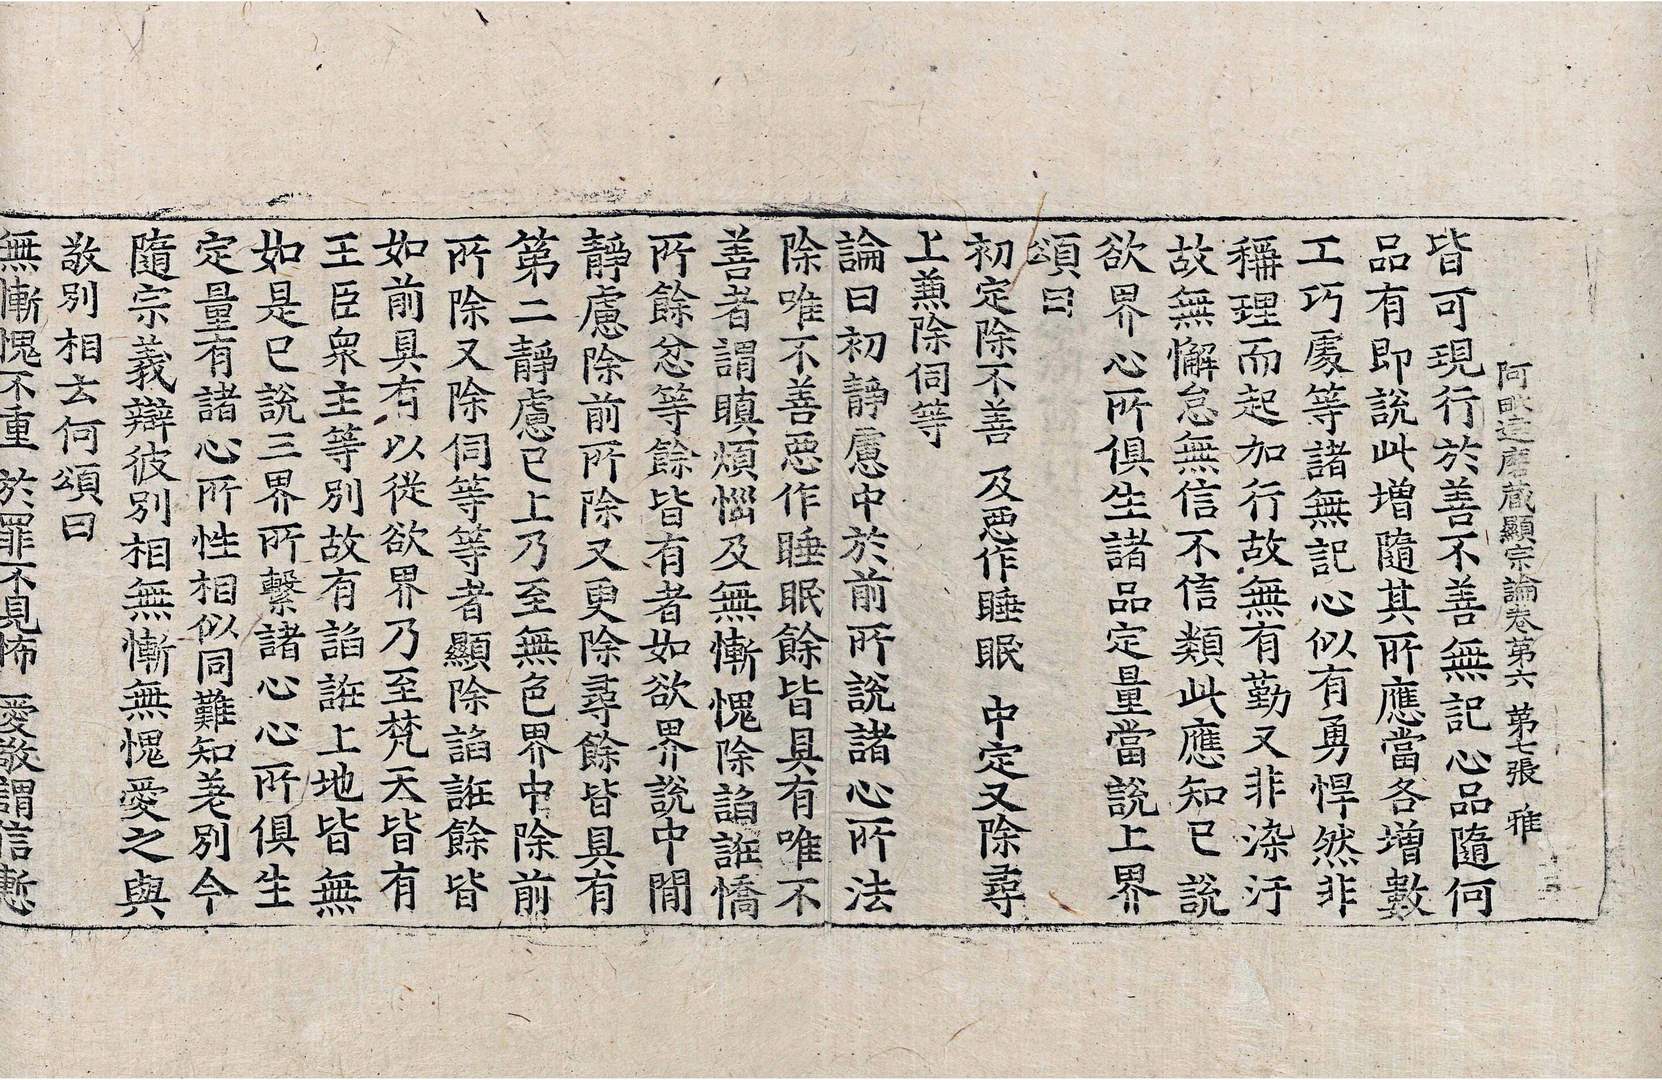 阿毗達磨藏顯宗論卷第六 第七張 雅
皆可現行於善不善無記心品隨何
品有即說此增隨其所應當各增數
工巧處等諸無記心似有勇悍然非
稱理而起加行故無有勤又非染汙
故無懈怠無信不信類此應知已說
欲界心所俱生諸品定量當說上界
頌曰
初定除不善 及惡作睡眠 中定又除尋
上兼除伺等
論曰初靜慮中於前所說諸心所法
除唯不善惡作睡眠餘皆具有唯不
善者謂瞋煩惱及無慚愧除諂誑憍
所餘忿等餘皆有者如欲界說中間
靜慮除前所除又更除尋餘皆具有
第二靜慮已上乃至無色界中除前
所除又除伺等等者顯除諂誑餘皆
如前具有以從欲界乃至梵天皆有
王臣衆主等別故有諂誑上地皆無
如是已說三界所繫諸心心所俱生
定量有諸心所性相似同難知差別今
隨宗義辯彼別相無慚無愧愛之與
敬別相云何頌曰
無慚愧不重 於罪不見怖 愛敬謂信慚